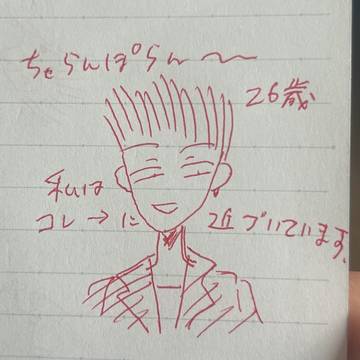 ちゃらんぽらん〜〜
26歳
私は
コレ→に 近づいています。